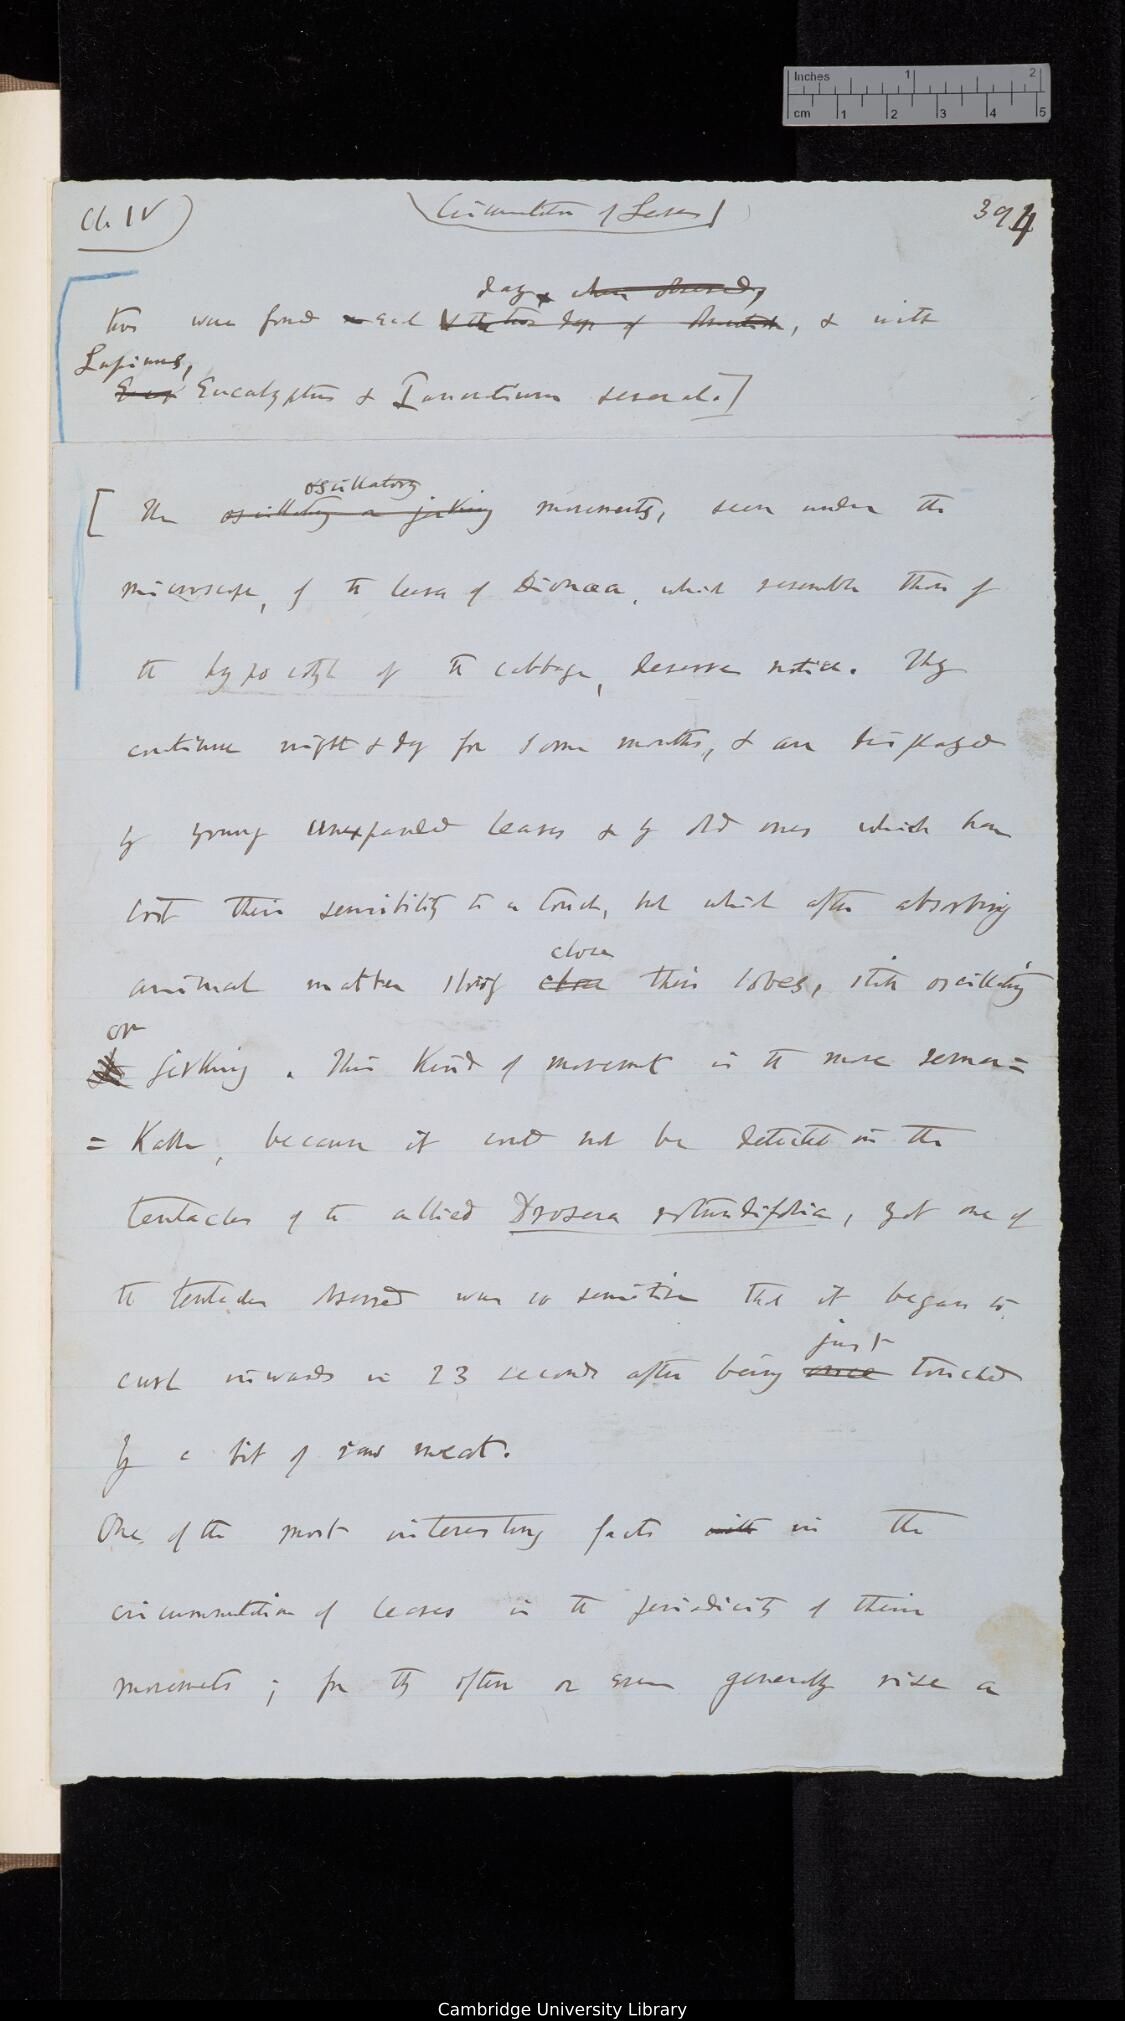 Inches 1 2
cm 1 2 3 4 5
Ch IV)
Circumnutation of Leaves
394
day, when observed,
two were found each, & with
Lupinus,
Eucalyptus & several.]
oscillatory
[ The oscillatory or jerking movements, seen under the
microscope, of the leaves of Dionaea, which resemble those of
the hypocotyl of the cabbage, deserve notice. They
continue night & day for some months, & are displayed
by young unexpanded leaves & by old ones which have
lost their sensibility to a touch, but which after absorbing
close
animal matter close their lobes, oscillating
or
jerking. This kind of movement is the more remar=
=kable, because it could not be detected in the
tentacles of the allied Drosera rotundifolia, yet one of
the tentacles observed was so sensitive that it began to
just
curl inwards in 23 seconds after being once touched
by a bit of raw meat.
One of the most interesting facts with in the
circumnutation of leaves is the periodicity of their
movements; for they often or even generally rise a
Cambridge University Library